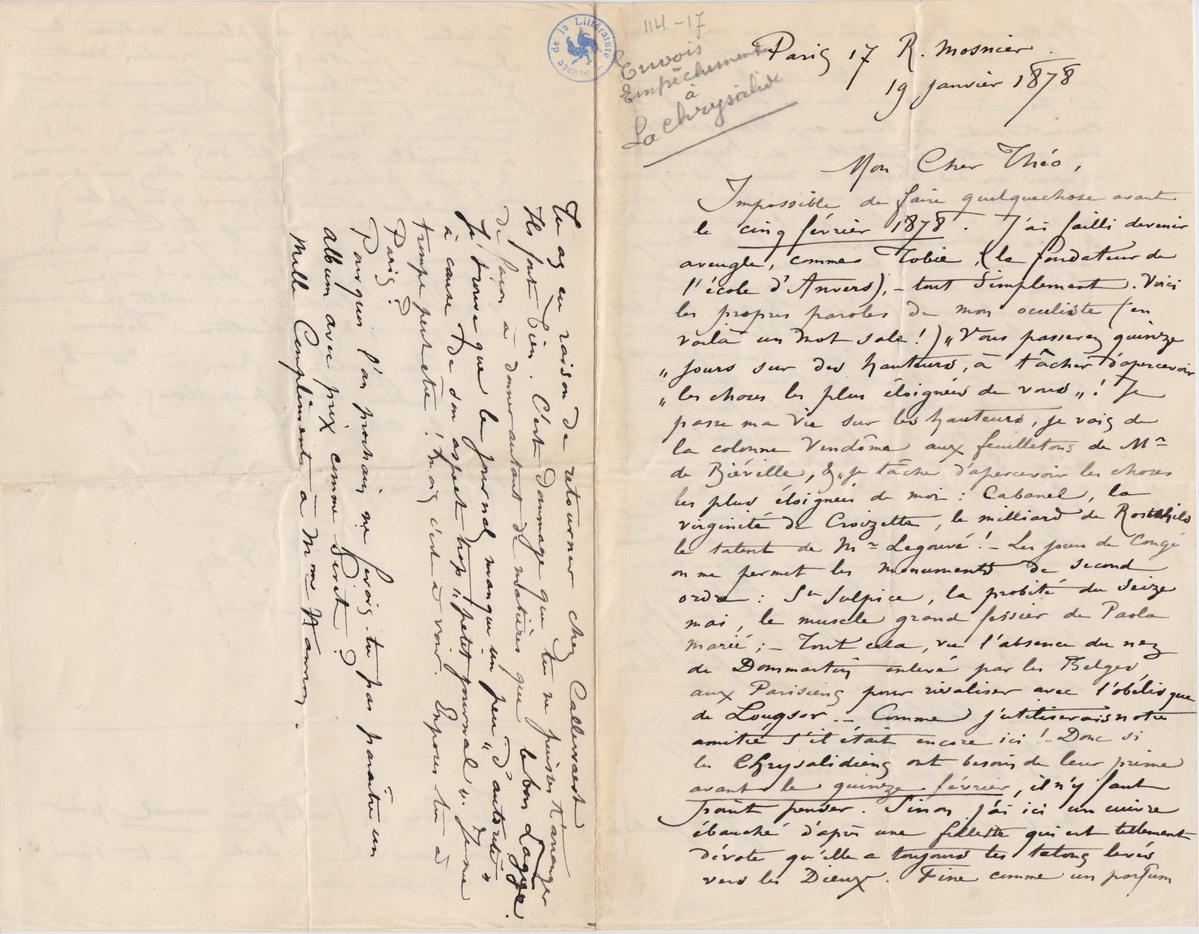 Musée de la Littérature
114-17
Envois
Empêchements
à
La Chrysalide
Paris 17 R. Mosnier.
19 janvier 1878
Mon Cher Théo,
Impossible de faire quelquechose avant
le cinq février 1878. J'ai failli devenir
aveugle, comme Tobie, (le fondateur de
l'école d'Anvers), - tout simplement. Voici
les propres paroles de mon oculiste (en
voilà un mot sale!) „Vous passerez quinze
„ jours sur des hauteurs, à tâcher d'apercevoir
„ les choses les plus éloignées de vous „! Je
passe ma vie sur les hauteurs, je vais de
la colonne Vendôme aux feuilletons de Mr
de Biéville, & je tâche d'apercevoir les choses
les plus éloignées de moi: Cabanel, la
virginité de Croizette, le milliard de Rostchild
le talent de Mr Legouvé! - Les jours de Congé
on me permet les monuments de second
ordre: St Sulpice, la probité du Seize
mai, le muscle grand fessier de Paola
marié; - Tout cela, vu l'absence du nez
de Dommartin enlevé par les Belges
aux Parisiens pour rivaliser avec l'obélisque
de Louqsor. - Comme j'utiliserais notre
amitié s'il était encore ici! - Donc si
les Chrysalidiens ont besoin de leur prime
avant le quinze février, il n'y faut
point penser. Sinon, j'ai ici un cuivre
ébauché d'après une fillette qui est tellement
dévote qu'elle a toujours les talons levés
vers les Dieux. Fine comme un parfum
Tu as eu raison de retourner chez Callewaert
Ils font bien. C'est dommage que tu ne puisses t'arranger
de façon à donner autant de matières que le bon
Je trouve que le journal manque un peu „d'autorité„
à cause de son aspect trop „petit journal„. Je me
trompe peut être! mais c'est à voir. Exposes tu à
Paris?
Pourquoi l'an prochain ne ferais-tu pas paraître un
album avec prix comme
Mille Compliments à Mme Hannon.